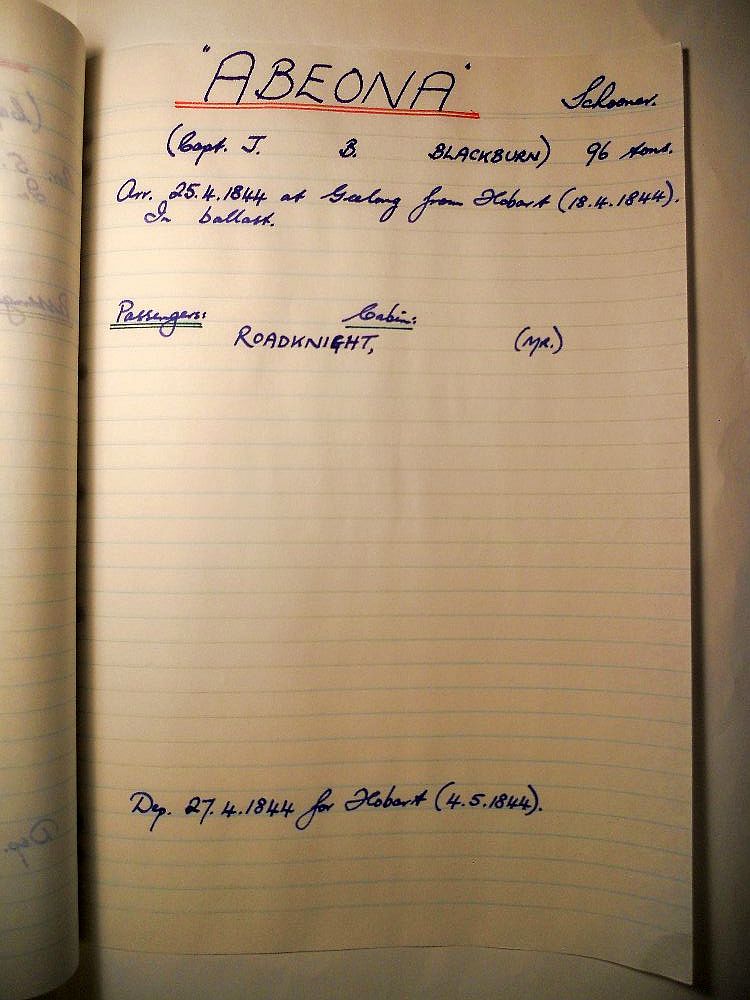 "ABEONA" Schooner.
(Capt. J. B. BLACKBURN) 96 tons.
Arr. 25.4.1844 at Geelong from Hobart (18.4.1844).
In ballast.
Passengers: Cabin:
ROADKNIGHT, (MR.)
Dep. 27.4.1844 for Hobart (4.5.1844).